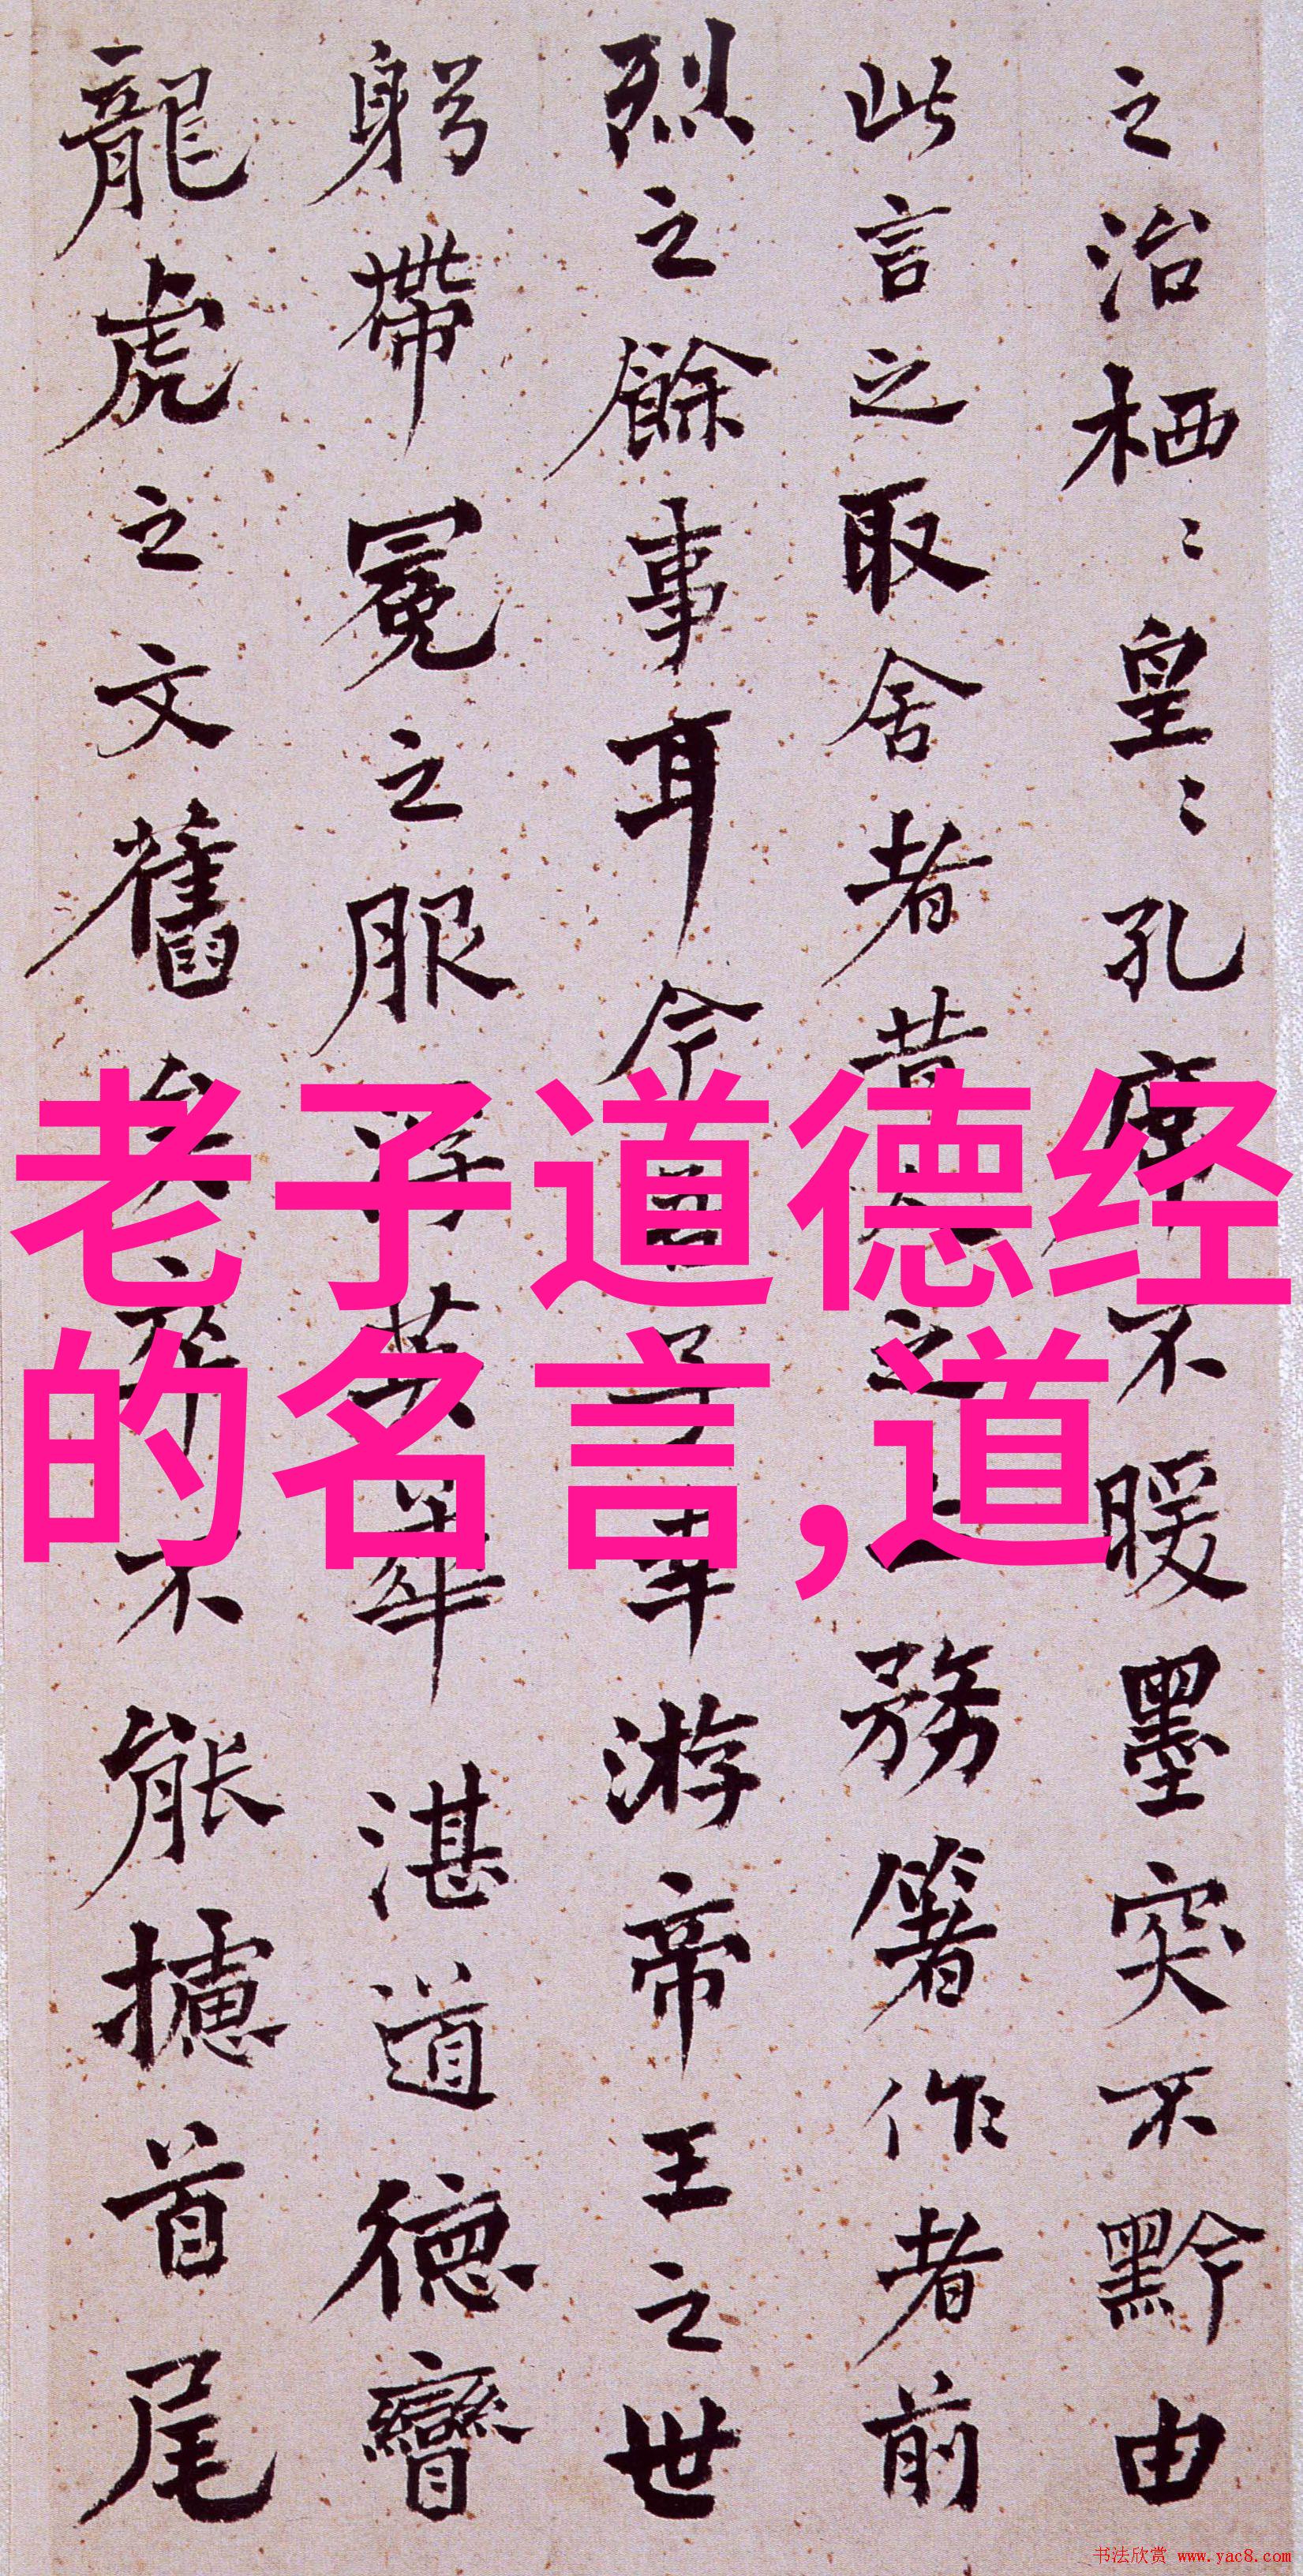 之治栖〻皇〻孔席不暖墨突不黔由
此言之取舍者昔人之上務著作者前
烈之餘事耳今吾子幸游帝王之世
躬帶冕之服浮英華湛道德
龍虎之文舊矣卒不能攄首尾
老子道德经
的名言,道
书法欣赏 www.yac8.com